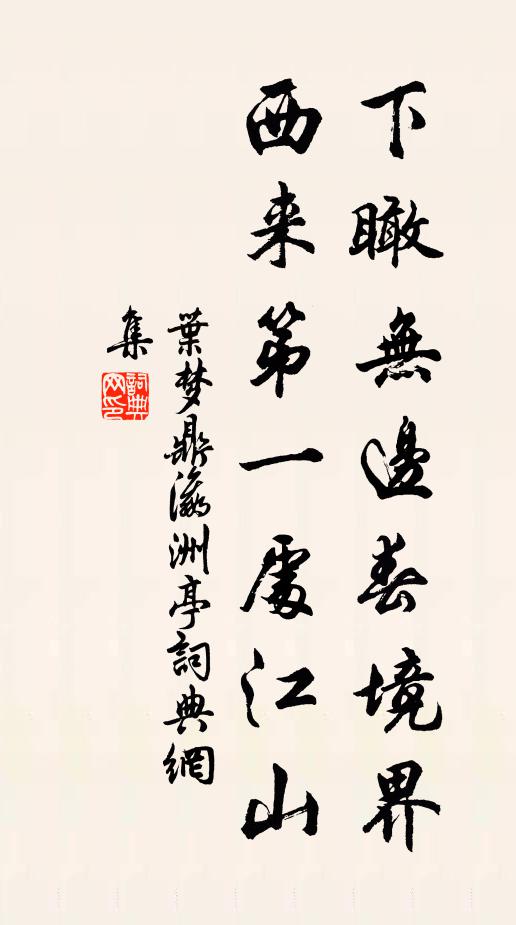 下瞰無邊春境界
西来第一處江山
葉梦鼎瀛洲亭詞典網
集
詞典网印